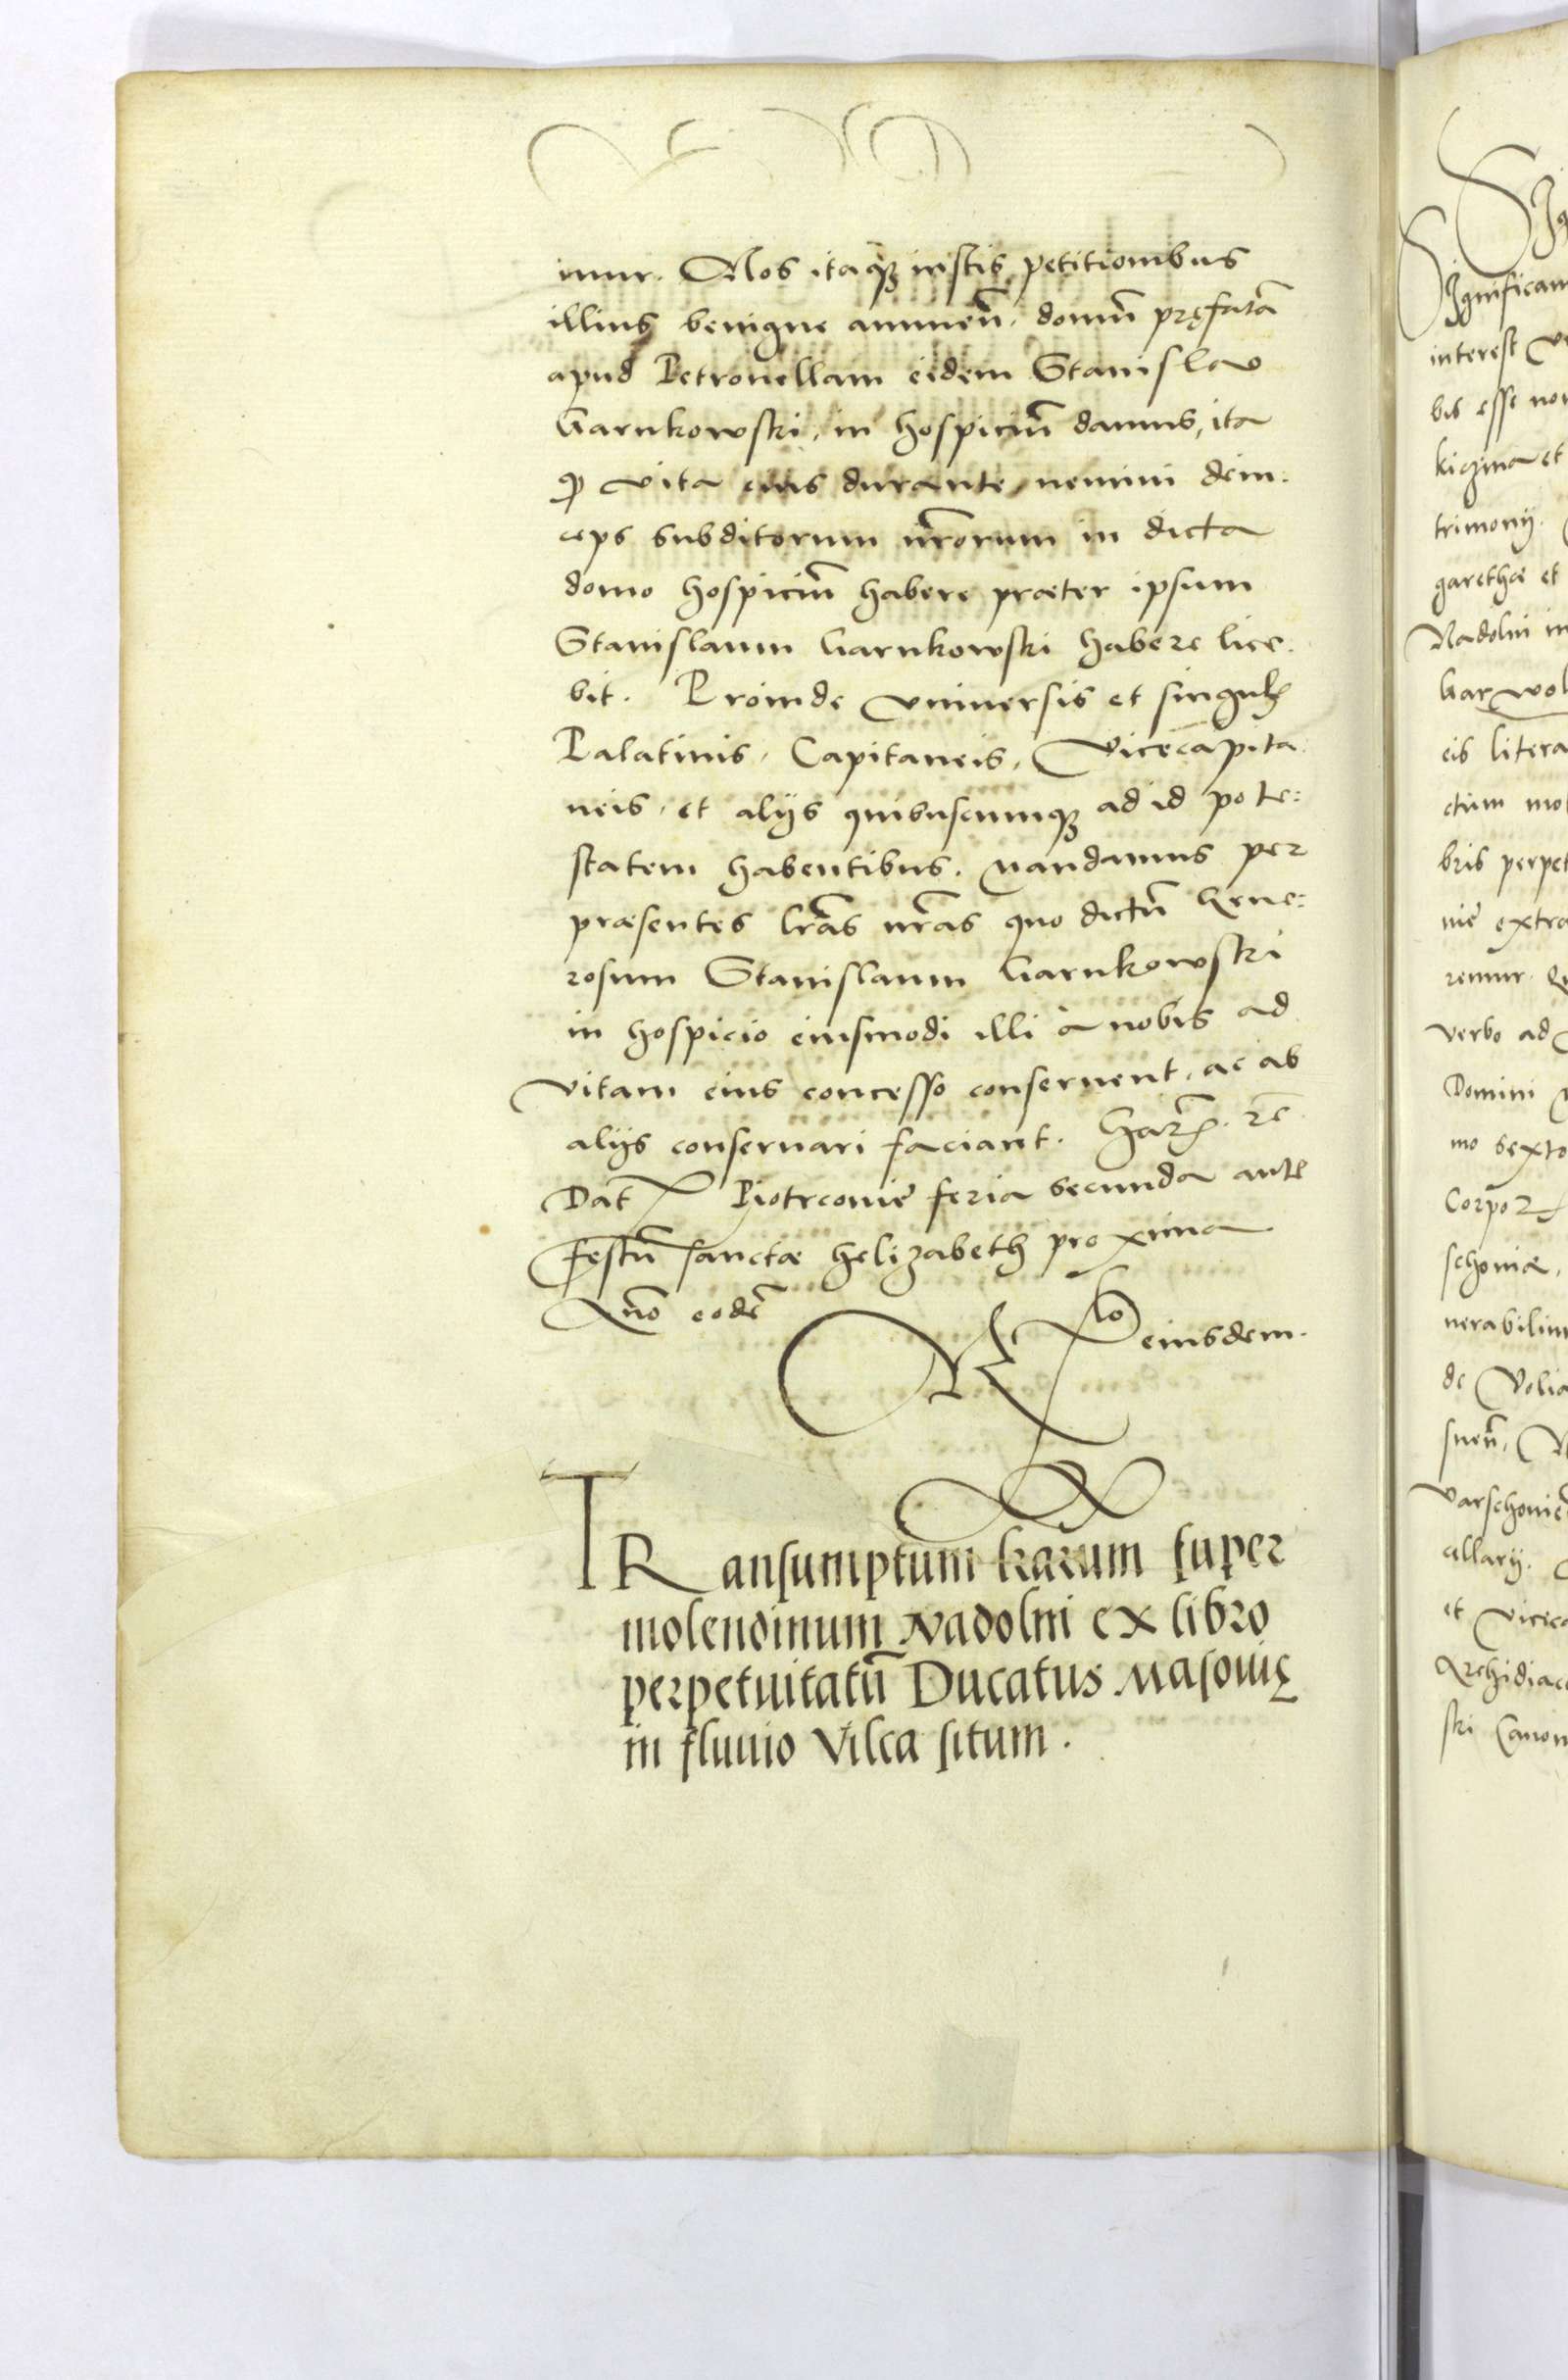 imur. Nos itaqꝫ iustis petitionibus
illius benigne annuen̄. domū pręfatā
apud Petronellam eidem Stanislao
Garnkowski, in hospiciū damus, ita
ꝙ vita eius durante, nemini dein-
ceps subditorum nr̄orum in dicta
domo hospiciū habere præter ipsum
Stanislaum Garnkowski habere lice-
bit. Proinde vniuersis et singulꝭ
Palatinis, Capitaneis, Vicecapita-
neis, et alijs quibuscumqꝫ ad id pote:
statem habentibus. Mandamus per
præsentes lr̄as nr̄as quo dictū Gene:
rosum Stanislaum Garnkowski
in hospicio eiusmodi illi à nobis ad
vitam eius concesso conseruent, ac ab
alijs conseruari faciant. Harꝝ. rē
Dat̄ Piotrconiē feria secunda ante
festū sanctæ Helizabeth proxima
Anō eodē
Rlo eiusdem.
TRansumptum lrarum super
molendinum Nadolni ex libro
perpetuitatū Ducatus Masouię
in fluuio Vilca situm.
Significam
interest
bis esse non
kiczina et
trimonij.
garethæ et
Nadolni in
Garwol
eis litera
ctum mo
bris perpet
niē extra
remur
verbo ad
Domini
mo sexto
Corpor
schoniæ,
nerabilium
de Volia
snen̄,
Varschoniē
cellarij.
et vicec
Archidiac
ski Canon